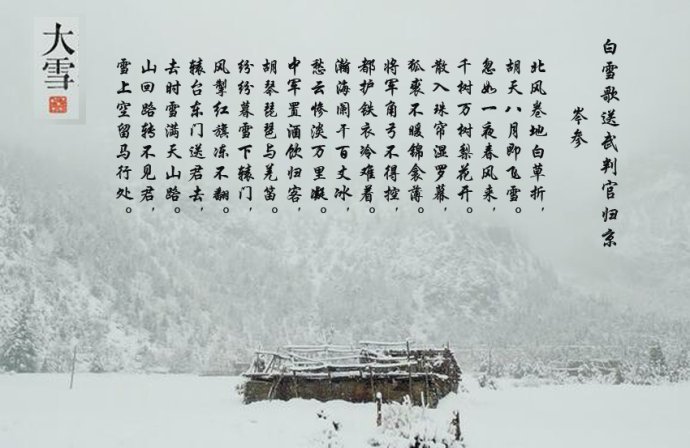 白雪歌送武判官归京
岑参
北风卷地白草折，
胡天八月即飞雪。
忽如一夜春风来，
千树万树梨花开。
散入珠帘湿罗幕，
狐裘不暖锦衾薄。
将军角弓不得控，
都护铁衣冷难着。
瀚海阑干百丈冰，
愁云惨淡万里凝。
中军置酒饮归客，
胡琴琵琶与羌笛。
纷纷暮雪下辕门，
风掣红旗冻不翻。
辕台东门送君去，
去时雪满天山路。
山回路转不见君，
雪上空留马行处。
大雪